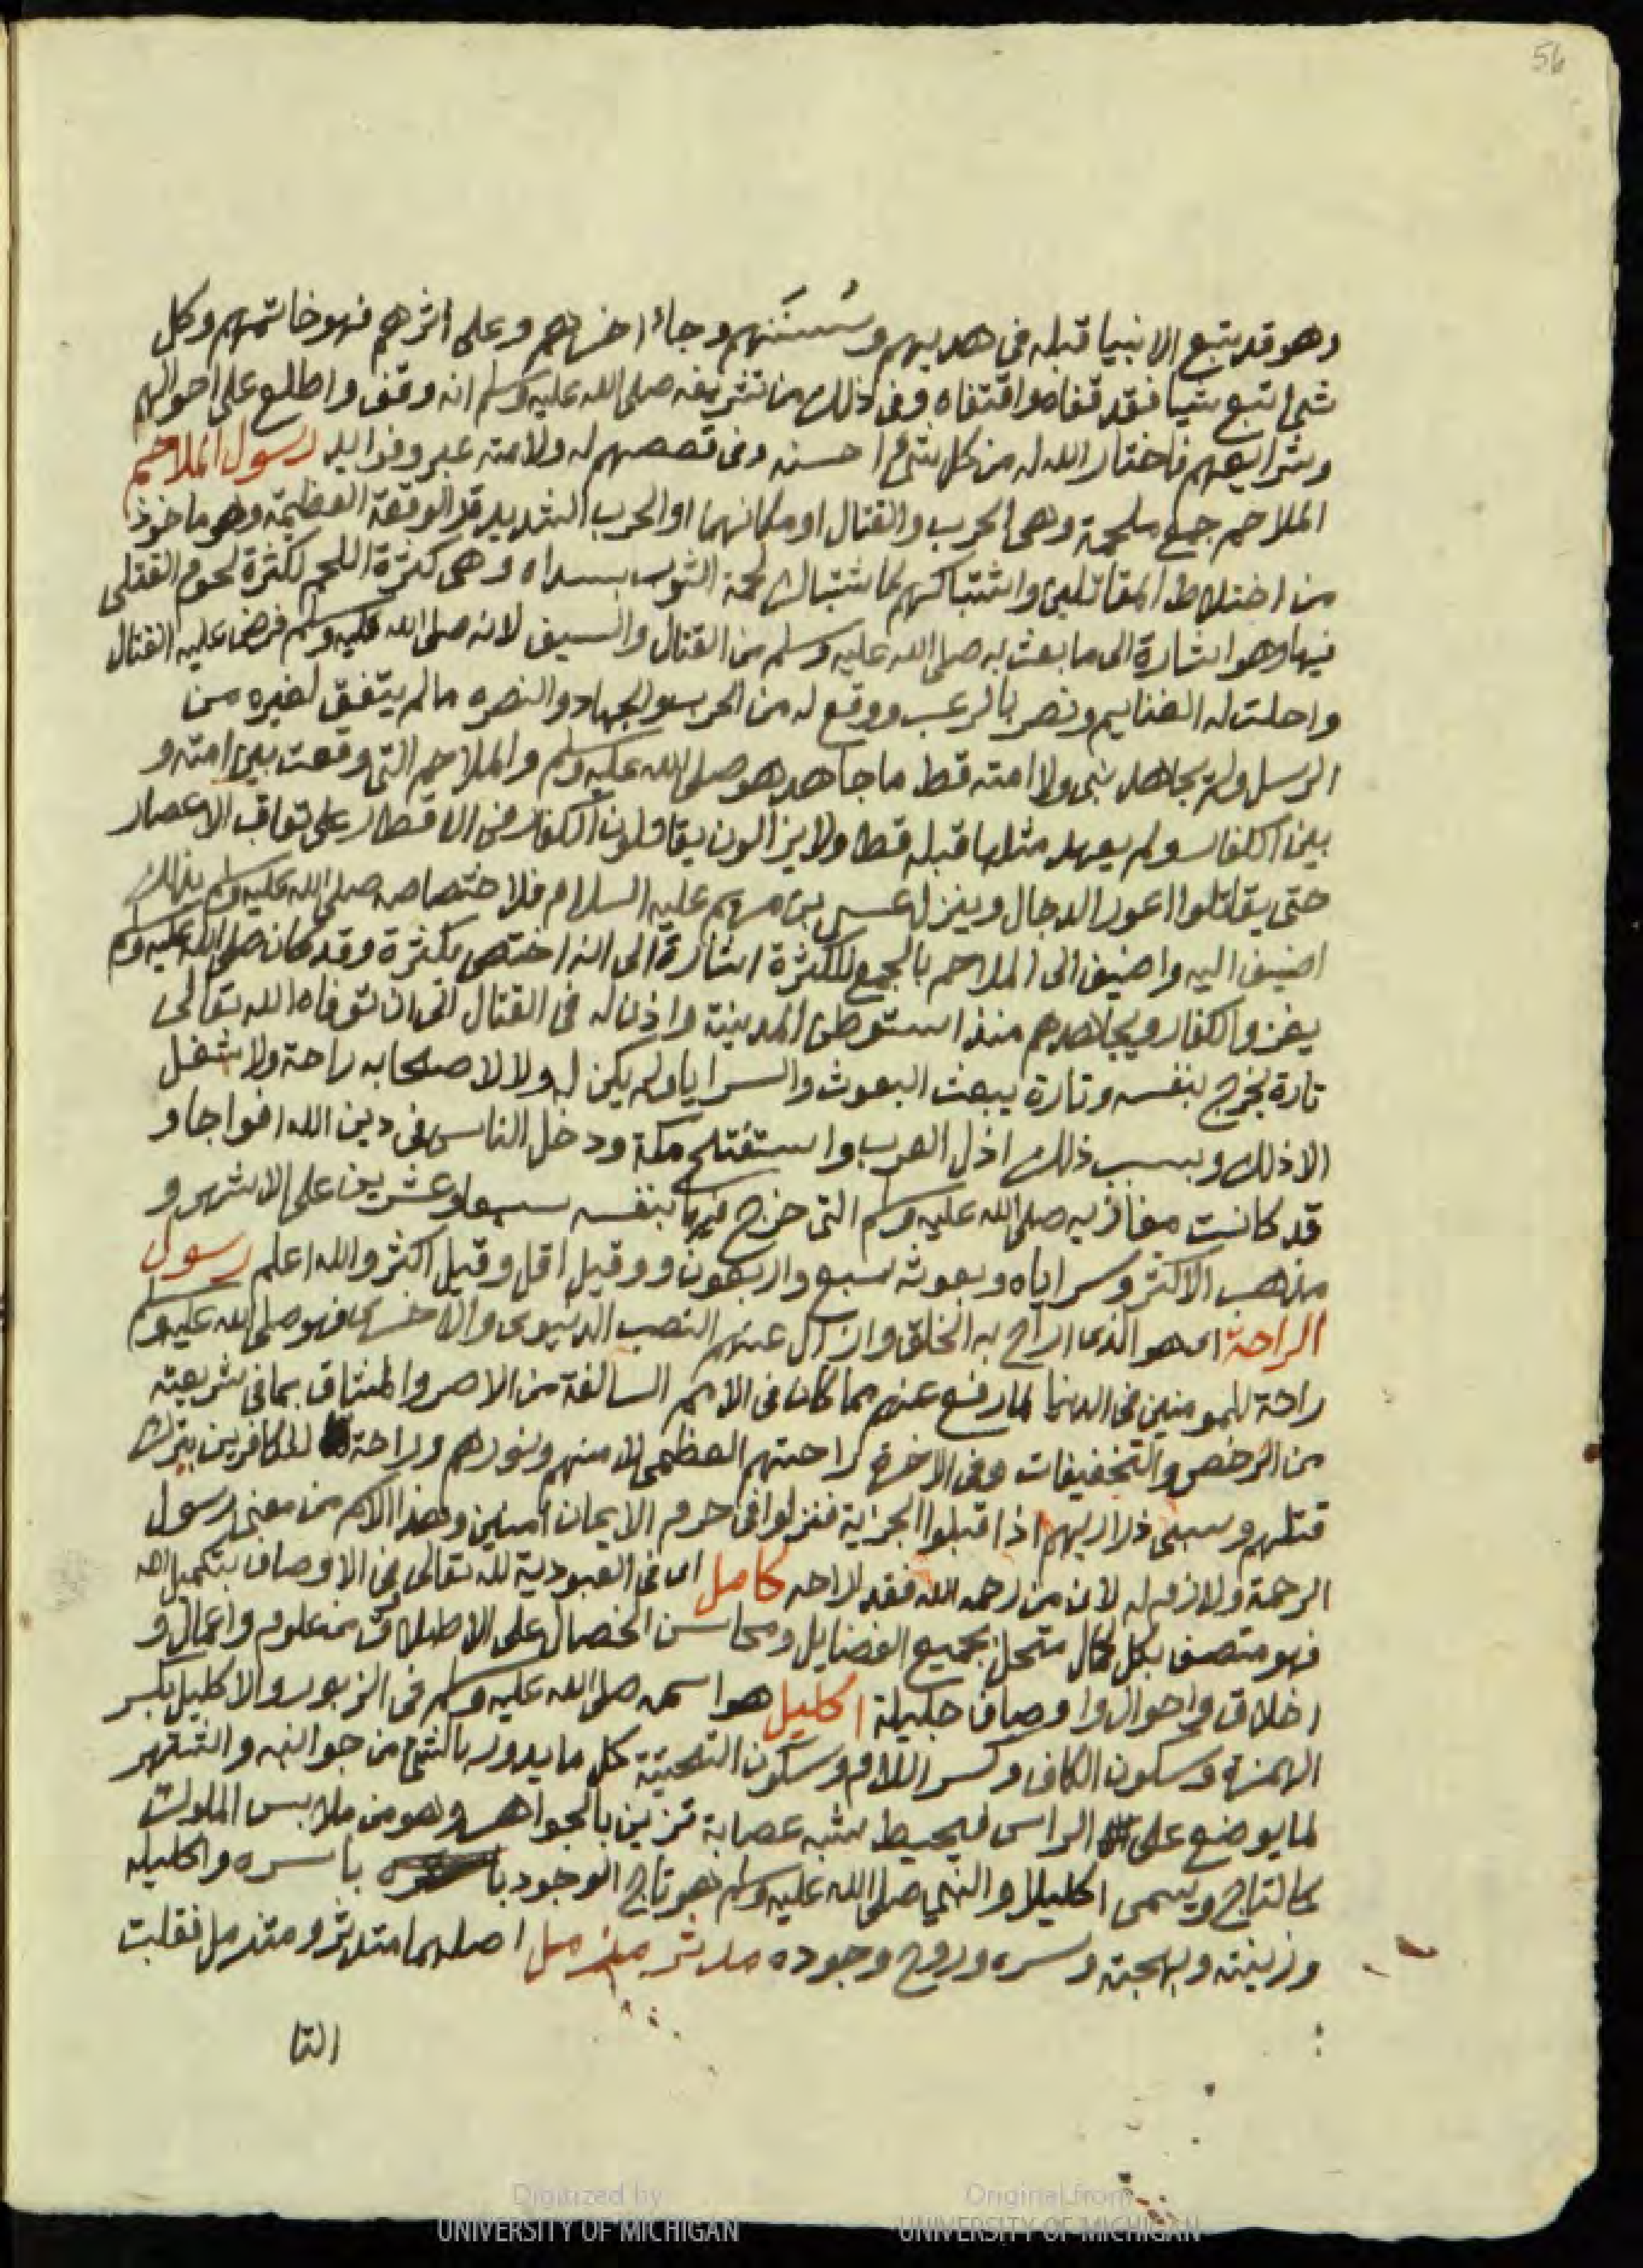 56
وهو قد يتبع الانبيا قبله فى هديهم وسُننَهم وجاء اخراهم وعلى اثرهم فهو خاتمهم وكل
شئ اتبع شيا فقد قفاه واقتفاه وفى ذلك من تشريفه صلى الله عليه وسلم انه وقف واطلع على احوالهم
وشرايعهم فاختار الله له من كل شئ احسنه وفى قصصهم له ولامته عبر وفوايد رسول الملاحم
الملاحم جمع ملحمة وهى الحرب والقتال او مكانهما او الحرب الشديد قد الوقعة العظيمة وهو ماخوذ
من اختلاط المقاتلين واشتباكهم كاشتباك لحمة الثوب بسداه وهى كثرة اللحم لكثرة لحوم القتلى
فيها وهو اشارة الى ما بعث به صلى الله عليه وسلم من القتال والسيف لانه صلى الله عليه وسلم فرض عليه القتال
واحلت له الغنايم ونصر بالرعب ووقع له من الحرب والجهاد والنصره ما لم يتفق لغيره من
الرسل ولم يجاهد نبى ولا امته قط ما جاهد هو صلى الله عليه وسلم والملاحم التى وقعت بين امته و
بين الكفار ولم يعهد مثلها قبله قط ولا يزالون يقاتلون الكفار فى الاقطار على تعاقب الاعصار
حتى يقاتلوا اعور الدجال وينزل عيسى بن مريم عليه السلام فلاختصاصه صلى الله عليه وسلم بذلك
اضيف اليه واضيف الى الملاحم بالجمع للكثرة اشارة الى انه اختص بكثرة وقد كان صلى الله عليه وسلم
يغزو الكفار ويجاهدهم منذ استوطن المدينة واذن له فى القتال الى ان توفاه الله تعالى
تارة يخرج بنفسه وتارة يبعث البعوث والسرايا ولم يكن له ولا لاصحابه راحة ولا شغل
الا ذلك وبسبب ذلك اذل العرب واستفتح مكة ودخل الناس فى دين الله افواجا و
قد كانت مغازيه صلى الله عليه وسلم التى خرج فيها بنفسه سبعا وعشرين على الاشهر و
مذهب الاكثر وسراياه وبعوثه سبع واربعون ووقيل اقل وقيل اكثر والله اعلم رسول
الراحة اى هو الذى اراح به الخلق وازال عنهم النصب الدنيوى والاخروى فهو صلى الله عليه وسلم
راحة للمومنين فى الدنيا لما رفع عنهم مما كان فى الامم السالفة من الاصر والمشاق بما فى شريعته
من الرخص والتخفيفات وفى الاخرة راحتهم العظمى لامنهم وفوزهم وراحة للكافرين بترك
قتلهم وسبى ذراريهم اذا قبلوا الجزية فنزلوا فى حرم الايمان امنين وهذا الاسم من معنى رسول
الرحمة ولازم له لان من رحمه الله فقد اراحه كامل اى فى العبودية لله تعالى فى الاوصاف بتكميل الله
فهو متصف بكل كمال متحل بجميع الفضايل ومحاسن الخصال على الاطلاق من علوم واعمال و
اخلاق واحوال واوصاف جليلة اكليل هو اسمه صلى الله عليه وسلم فى الزبور والاكليل بكسر
الهمزة وسكون الكاف وكسر اللام وسكون التحتية كل ما يدور بالشئ من جوانبه واشتهر
لما يوضع على الراس فيحيط شبه عصابة تزين بالجواهر وهو من ملابس الملوك
كالتاج ويسمى اكليلا والنبى صلى الله عليه وسلم هو تاج الوجود باسره واكليله
وزينته وبهجته وسره وروح وجوده مدثر مزمل اصلهما متدثر ومتزمل فقلبت
التا
Digitized by
UNIVERSITY OF MICHIGAN
Original from
UNIVERSITY OF MICHIGAN